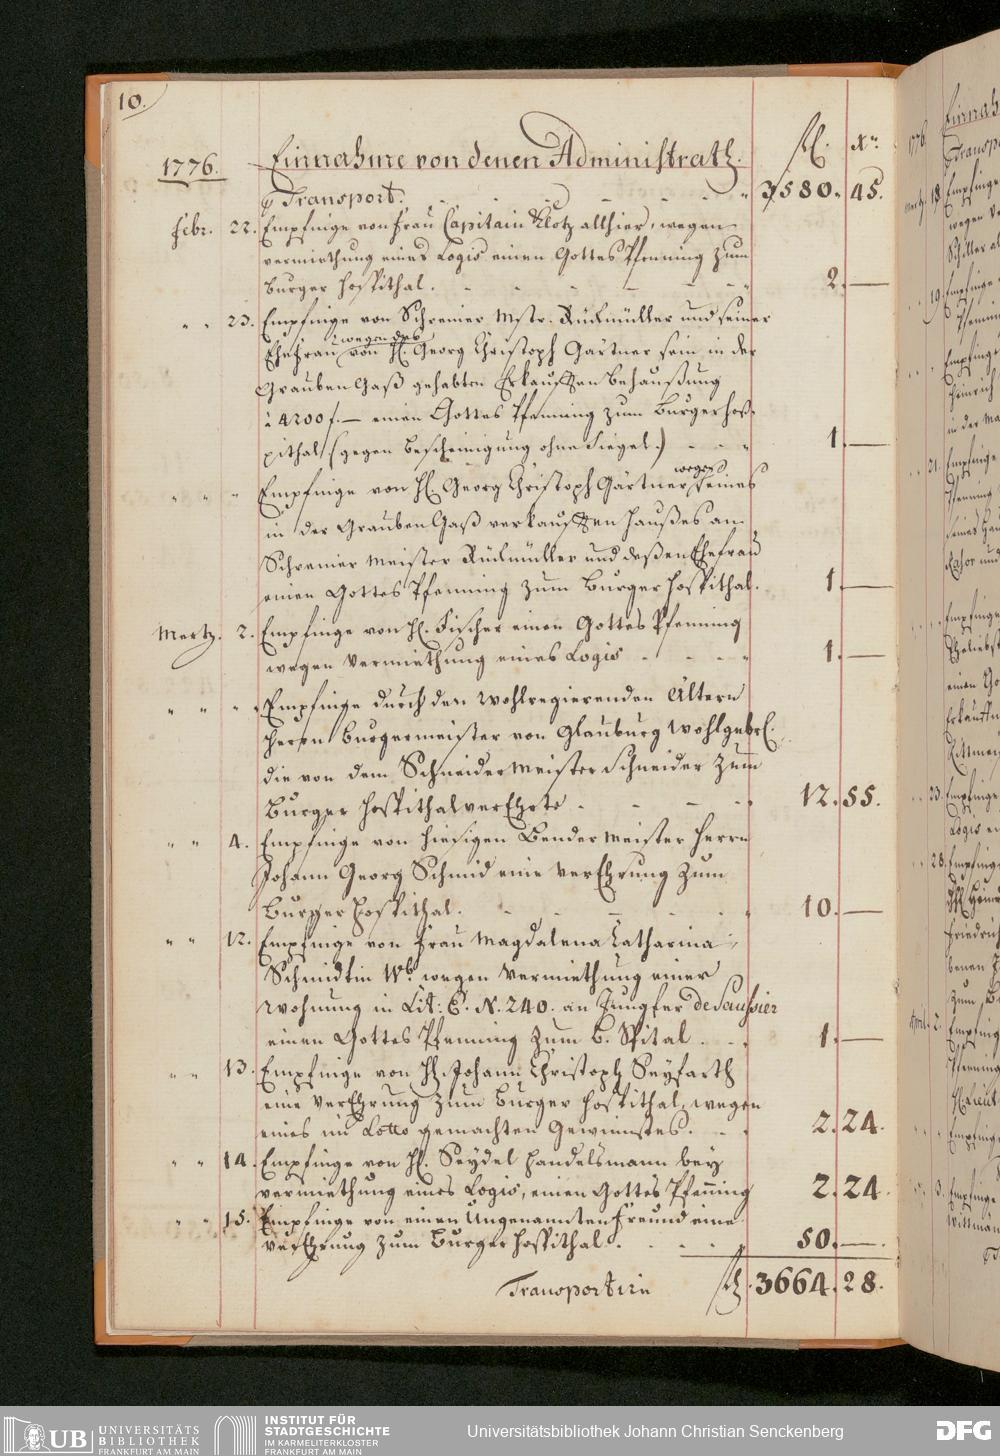 10.
1776. Einnahme von denen Administrath. fl. Xr.
Transport. 3580. 45.
febr. 22. Empfinge von Frau Capitain Klotz allhier, wegen
vermiethung eines Logis einen Gottes Pfenning zum
Burger Hospithal. 2. —
" " 23. Empfinge von Schreiner Mstr. Rückmüller und seiner
wegen des
Ehefrau von H. Georg Christoph Gärtner sein in der
Grauben Gaß gehabten Erkaufften Behaußung
à 4200 f. — einen Gottes Pfenning zum Burger Hos-
pithal (gegen Bescheinigung ohne Siegel.) 1. —
wegen
" " " Empfinge von H. Georg Christoph Gärtner seines
in der Grauben Gaß verkaufften Haußes an
Schreiner Meister Rückmüller und deßen Ehefrau
einen Gottes Pfenning zum Burger Hospithal. 1. —
Mertz. 2. Empfinge von H. Fischer einen Gottes Pfenning
wegen Vermiethung eines Logis 1. —
" " " Empfinge durch den Wohlregierenden Ältern
Herrn Burgermeister von Glauburg Wohlgebl.
die von dem Schneider Meister Schneider zum
Burger Hospithal verEhrte 12. 55.
" " 4. Empfinge von hiesigen Bender Meister Herrn
Johann Georg Schmid eine VerEhrung zum
Burger Hospithal. 10. —
" " 12. Empfinge von Frau Magdalena Catharina
Schmidtin Wb. wegen Vermiethung einer
Wohnung in Lit: E. N. 240. an Jungfer de Saussier
einen Gottes Pfenning zum B. Spital. 1. —
" " 13. Empfinge von H. Johann Christoph Seyfarth
eine VerEhrung zum Burger Hospithal, wegen
eines im Lotto gemachten Gewinnstes. 2. 24.
" " 14. Empfinge von H. Seydel Handelsmann bey
vermiethung eines Logis, einen Gottes Pfenning 2. 24.
" " 15. Empfinge von einen Ungenannten Freund eine
verEhrung zum Burger Hospithal. 50. —
Transportirn fl. 3664. 28.
UB UNIVERSITÄTS
BIBLIOTHEK
FRANKFURT AM MAIN
INSTITUT FÜR
STADTGESCHICHTE
IM KARMELITERKLOSTER
FRANKFURT AM MAIN
Universitätsbibliothek Johann Christian Senckenberg
DFG